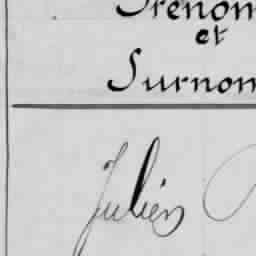 Prénom
et
Surnom
Julien